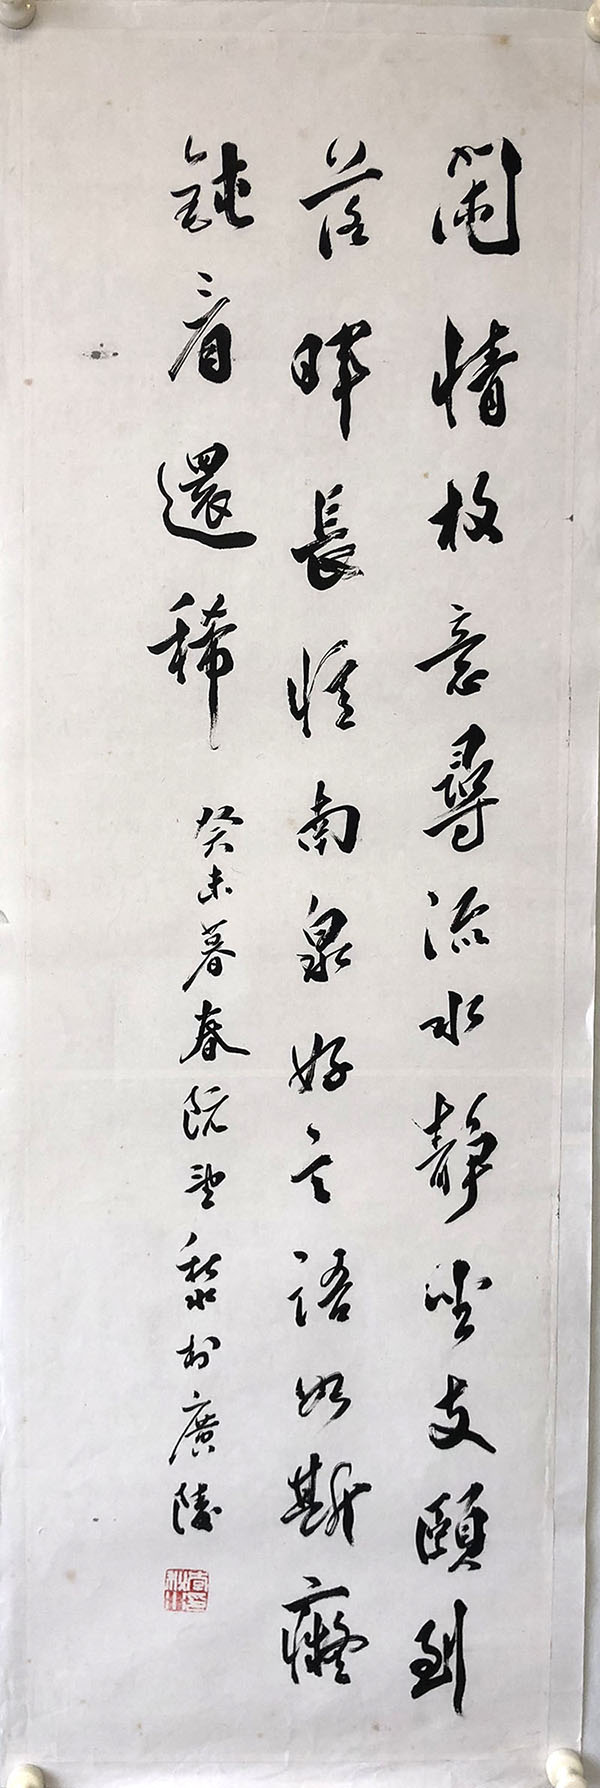 閑情放意尋流水靜坐支頤到
落暉長恠南泉好言語如斯癡
鈍者還稀
癸未暮春阮黎於廣陵